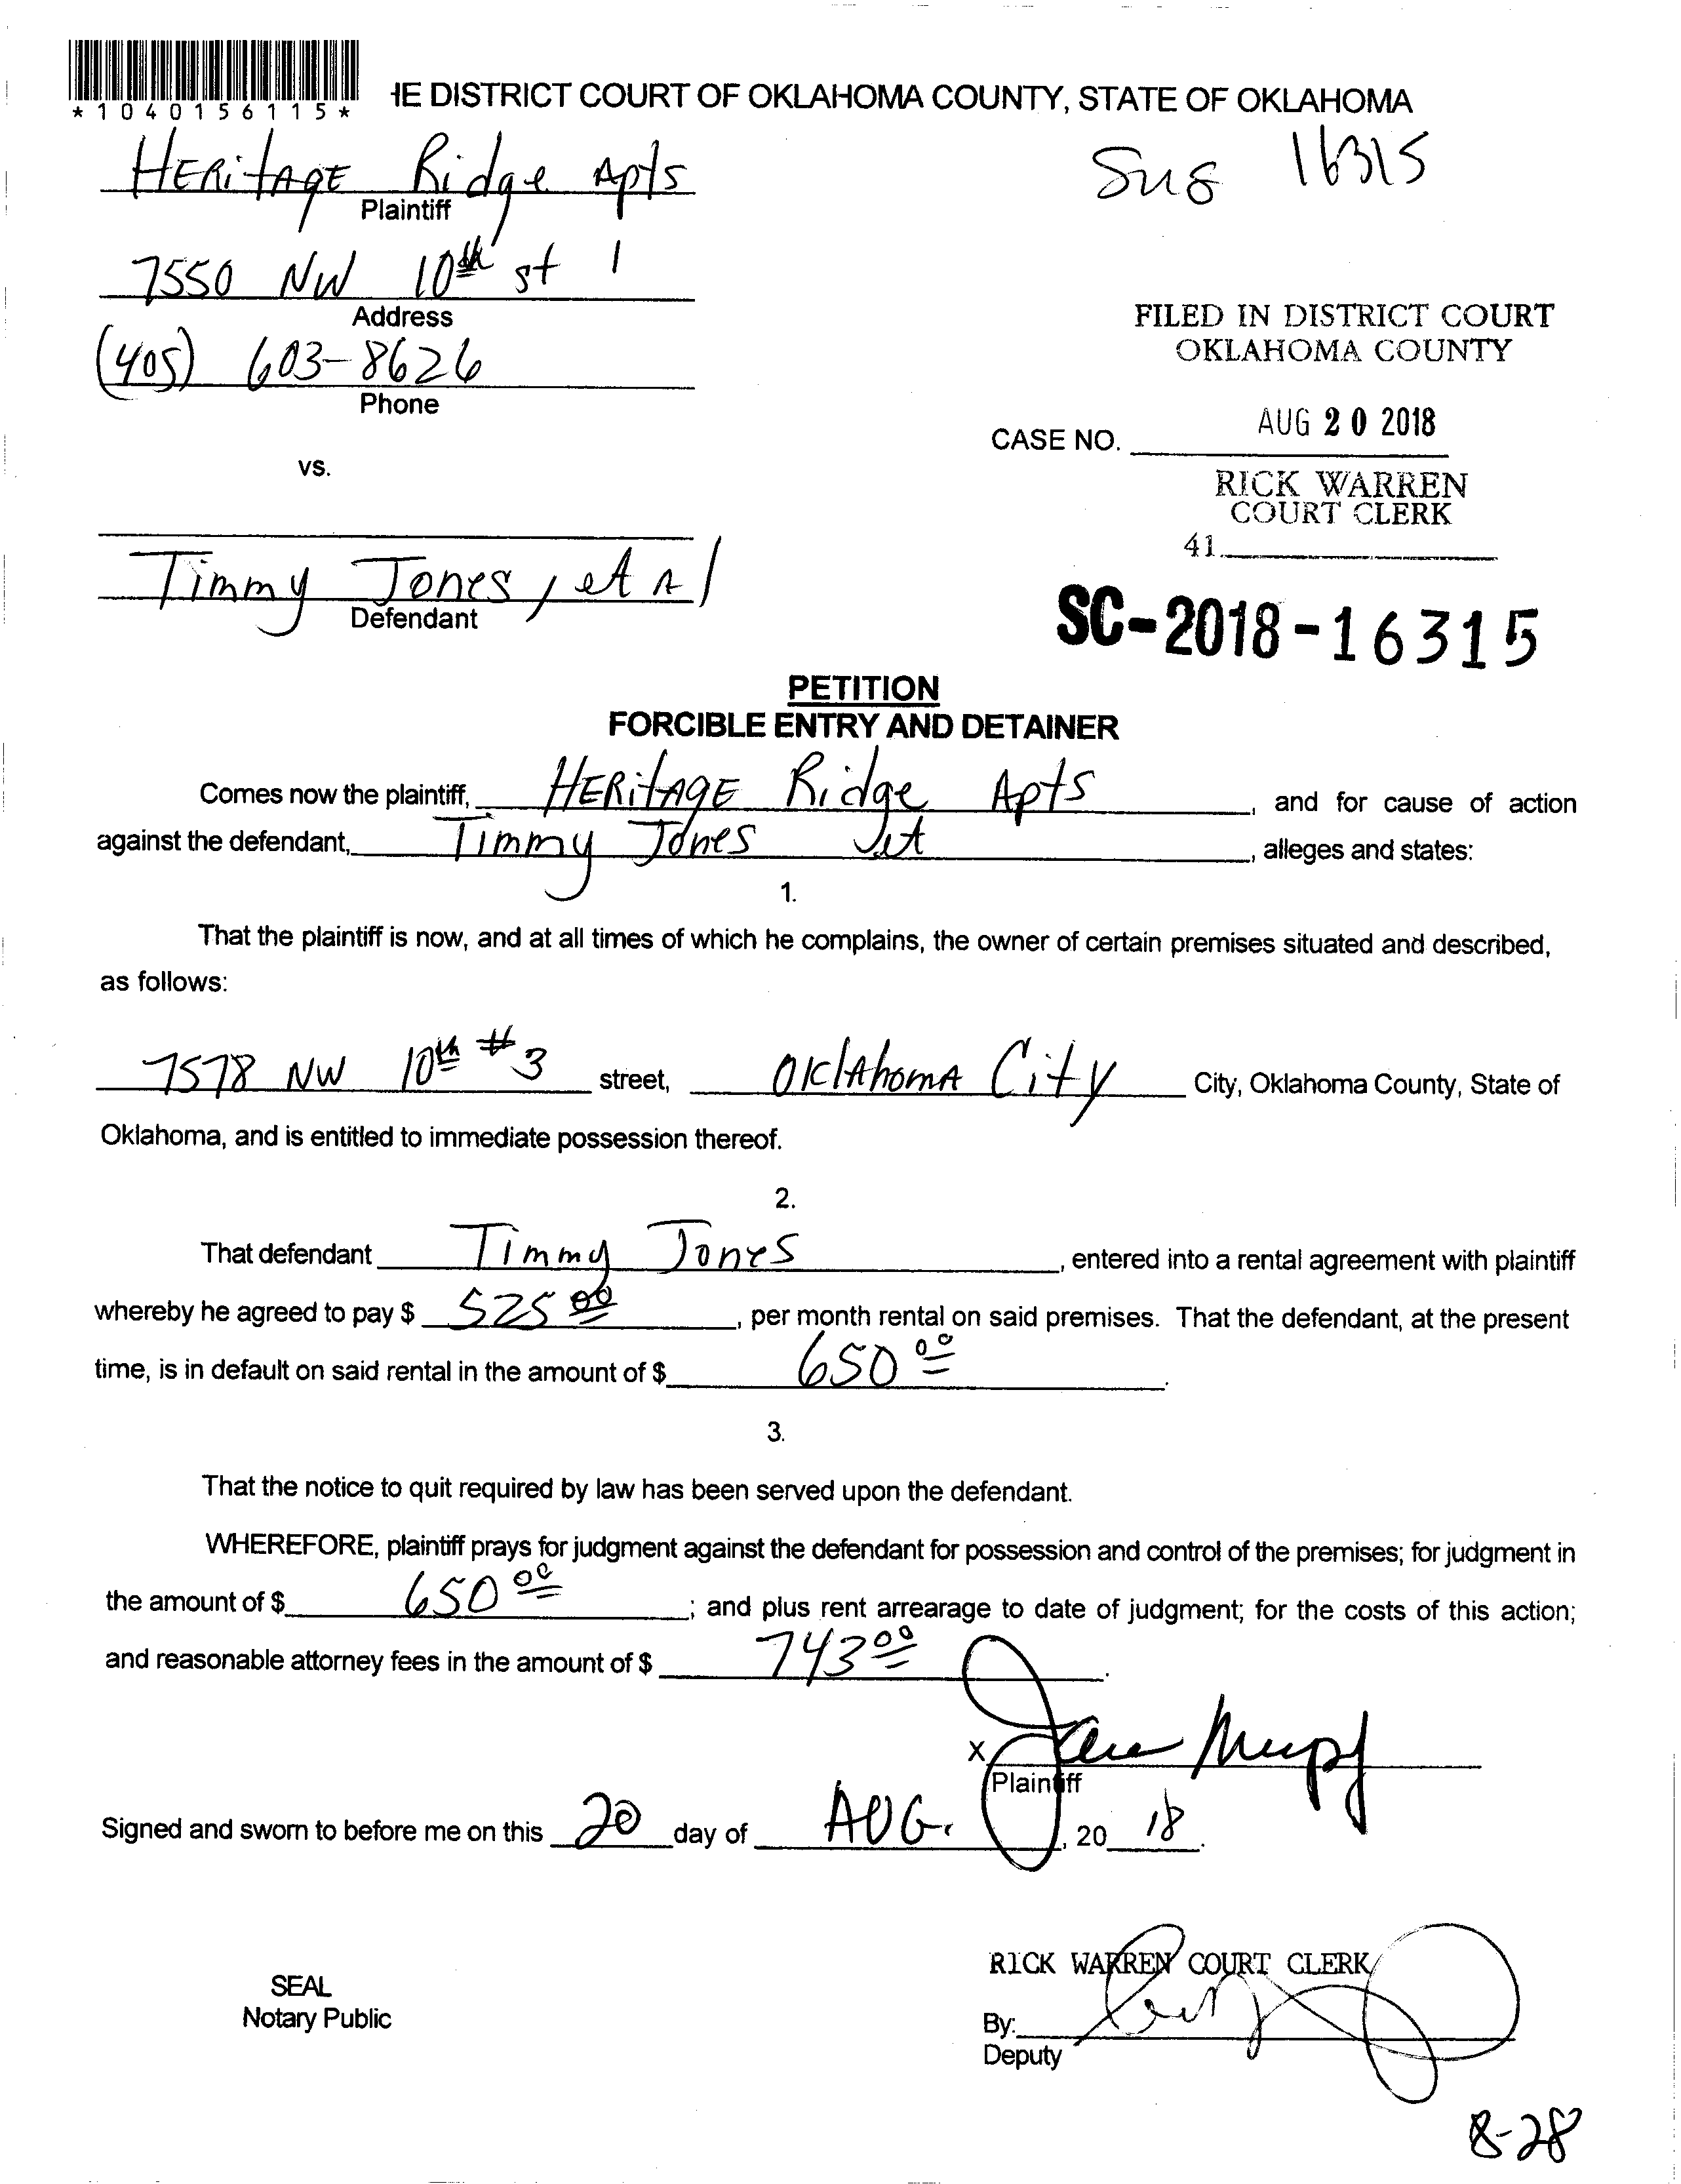 *1040156115*
HE DISTRICT COURT OF OKLAHOMA COUNTY, STATE OF OKLAHOMA
HERitAGE Ridge Apts
16315
Plaintiff
7550 NW 10th st 1
Address
FILED IN DISTRICT COURT
OKLAHOMA COUNTY
(405) 603-8626
Phone
CASE NO. AUG 20 2018
vs.
RICK WARREN
COURT CLERK
41.
Timmy Jones, et Al
Defendant
SC-2018-16315
PETITION
FORCIBLE ENTRY AND DETAINER
Comes now the plaintiff, HERitAGE Ridge Apts, and for cause of action
against the defendant, Timmy Jones et, alleges and states:
1.
That the plaintiff is now, and at all times of which he complains, the owner of certain premises situated and described,
as follows:
7578 NW 10th #3 street, OklAhomA City City, Oklahoma County, State of
Oklahoma, and is entitled to immediate possession thereof.
2.
That defendant Timmy Jones, entered into a rental agreement with plaintiff
whereby he agreed to pay $ 525 00, per month rental on said premises. That the defendant, at the present
time, is in default on said rental in the amount of $ 650 00.
3.
That the notice to quit required by law has been served upon the defendant.
WHEREFORE, plaintiff prays for judgment against the defendant for possession and control of the premises; for judgment in
the amount of $ 650 00; and plus rent arrearage to date of judgment; for the costs of this action;
and reasonable attorney fees in the amount of $ 743 00.
X
Plaintiff
Signed and sworn to before me on this 20 day of AUG., 20 18.
RICK WARREN COURT CLERK
SEAL
Notary Public
By:
Deputy
8-28